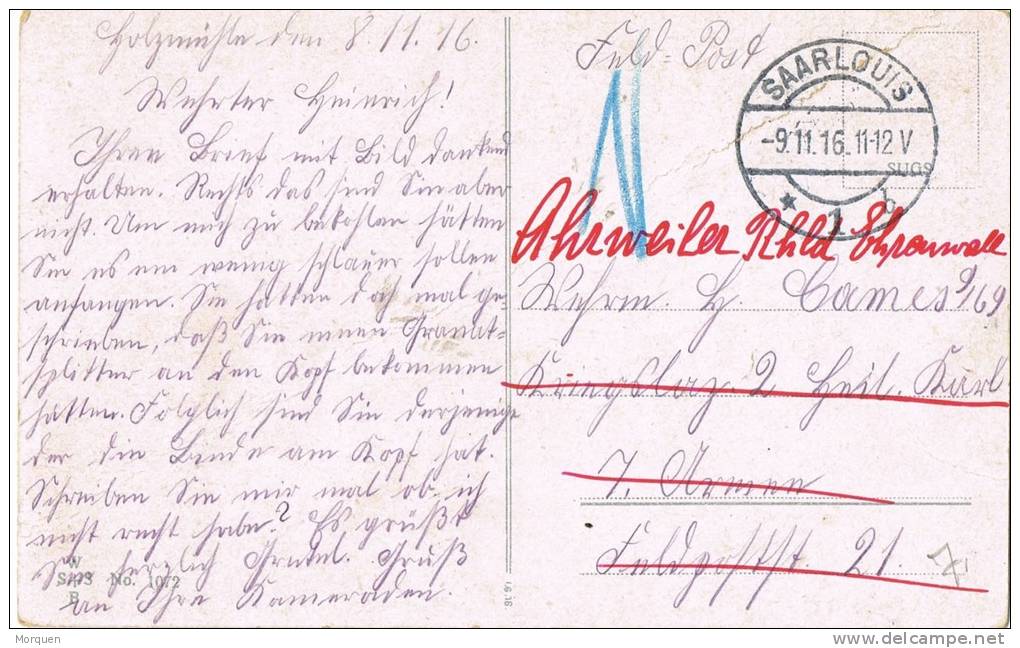 Holzmühle den 8.11.16.
Wehrter Heinrich!
Ihren Brief mit Bild dankend
erhalten. Rechts das sind Sie aber
nicht. Um mich zu bekohlen hätten
Sie es ein wenig schlauer sollen
anfangen. Sie hatten doch mal ge-
schrieben, daß Sie einen Granat-
splitter an den Kopf bekommen
hätten. Folglich sind Sie derjenige
der die Binde am Kopf hat.
Schreiben Sie mir mal ob ich
nicht recht habe? Es grüßt
herzlich Gretel. Gruß
an Ihre Kameraden.
W
S+S No. 1072
B
1.6.16
Feld-Post
SAARLOUIS
-9.11.16.11-12 V
* 1 b
Ahrweiler Rhld Ehrenwall
Wehrm. H. Cames 9/69
Kriegslaz. 2 Heil. Karl
7. Armee
Feldpostst. 21.
Morquen
delcampe.net